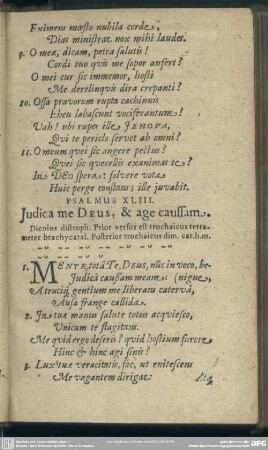 Eximens mœsto nubila corde,
Dias ministrat nox mihi laudes.
9. O meæ, dicam, petra salutis!
Cordi tuo qvis me sopor aufert?
O mei cur sic immemor, hosti
Me derelinqvis dira crepanti?
10. Ossa pravorum rupta cachinnis
Eheu labascunt vociferantum!
Vah! ubi rupes ille JEHOVA,
Qvi te periclo servet ab omni?
11. O meum qvei sic angere pectus?
Qvei sic qverelis exanimas te?
In DEO spera: solvere vota
Huic perge constans; ille juvabit.
PSALMUS XLIII.
Judica me DEUS, & age caussam.
Dicolos distroph. Prior versus est trochaicus tetra-
meter brachycatal. Posterior trochaicus dim. cat.h.m.
1. MENTE totâ Te, DEUS, nũc in voco, be-
Judicâ caussam meam (nigne,
A truciq; gentium me liberans catervâ,
Ausa frange callida.
2. In tua manus salute totus acqviesco,
Unicum te flagitans.
Me qvid ergo deseris? qvid hostium furore
Hinc & hinc agi sinis?
3. Lux tuæ veracitatis, fac, ut enitescens
Me vagantem dirigat